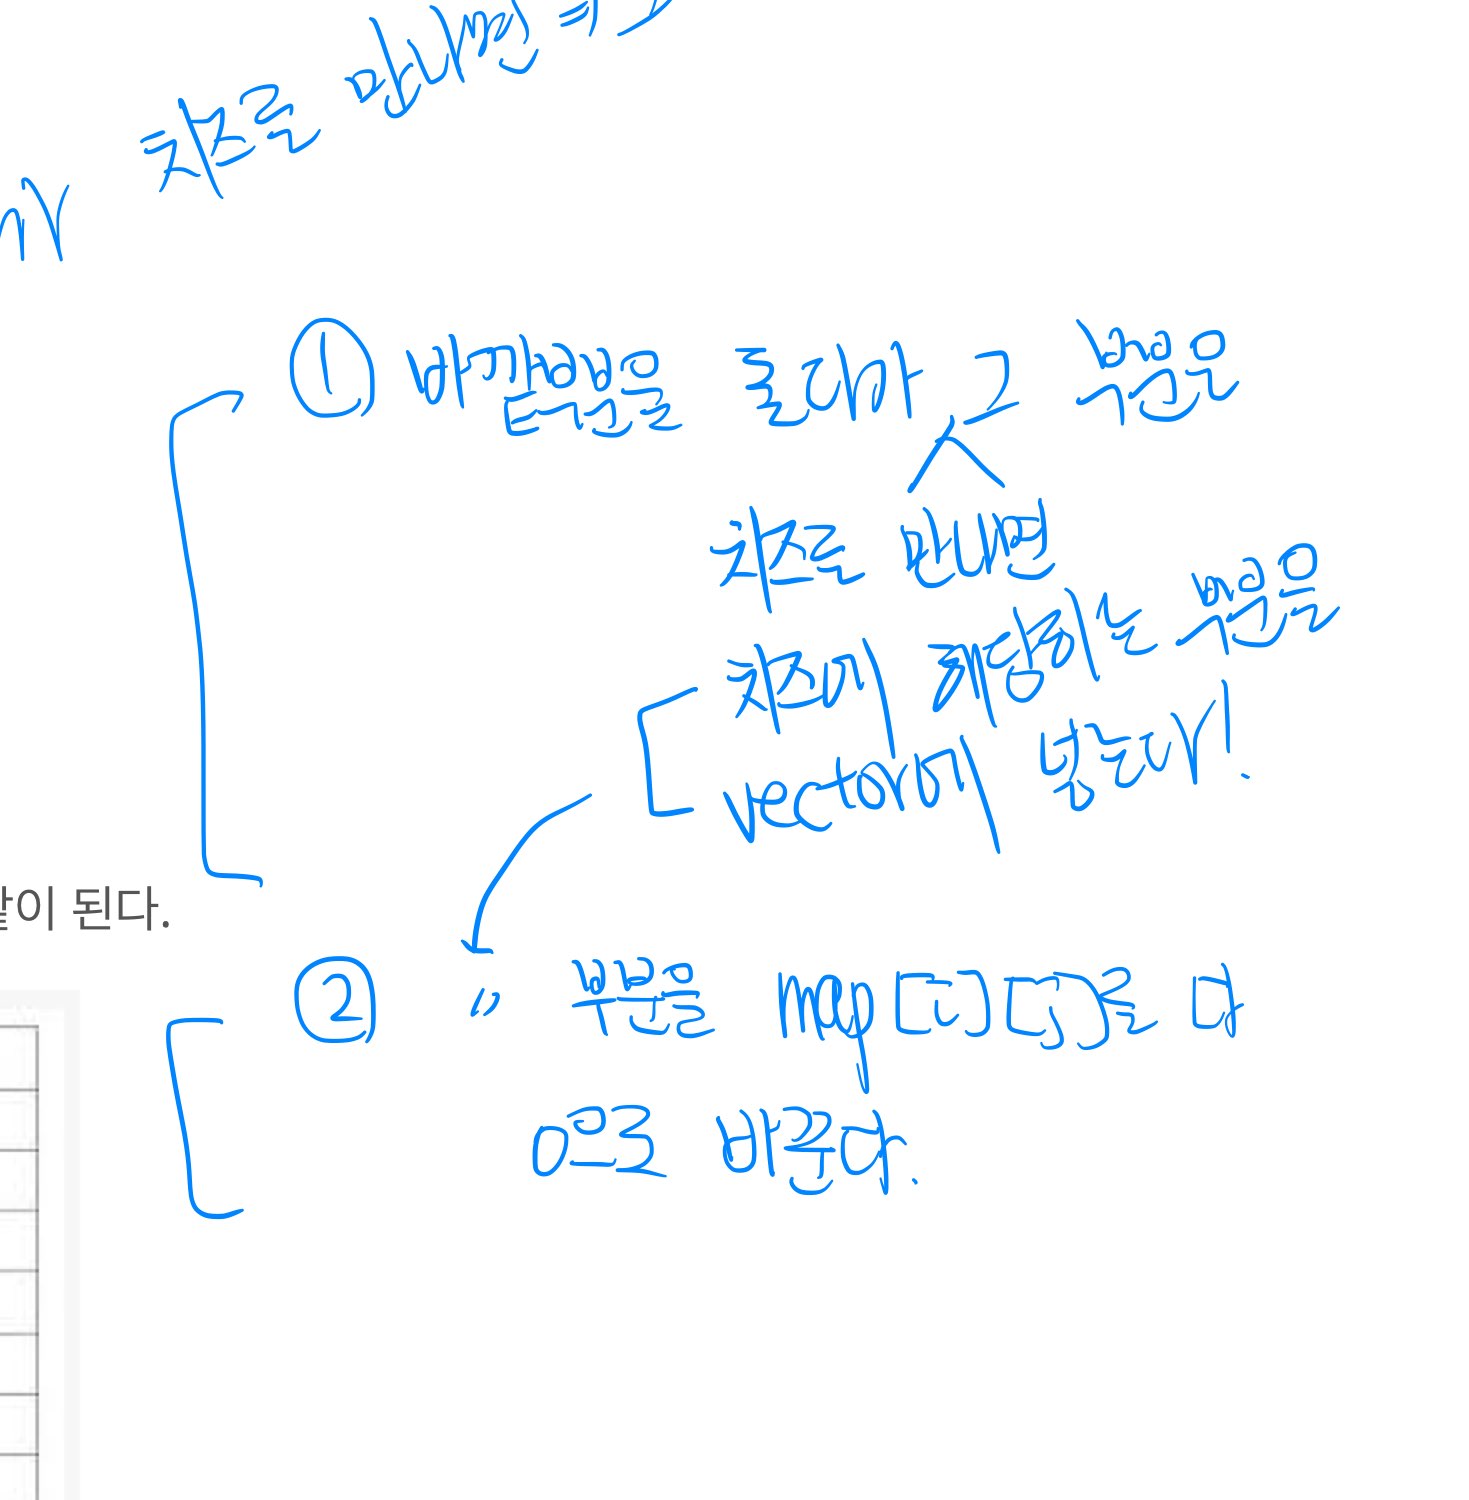 치즈를 만나면 =>
① 바깥부분을 돌다가 그 부분은
치즈를 만나면
치즈에 해당하는 부분을
vector에 넣는다!
같이 된다.
② " 부분을 map[i][j]를 다
0으로 바꾼다.